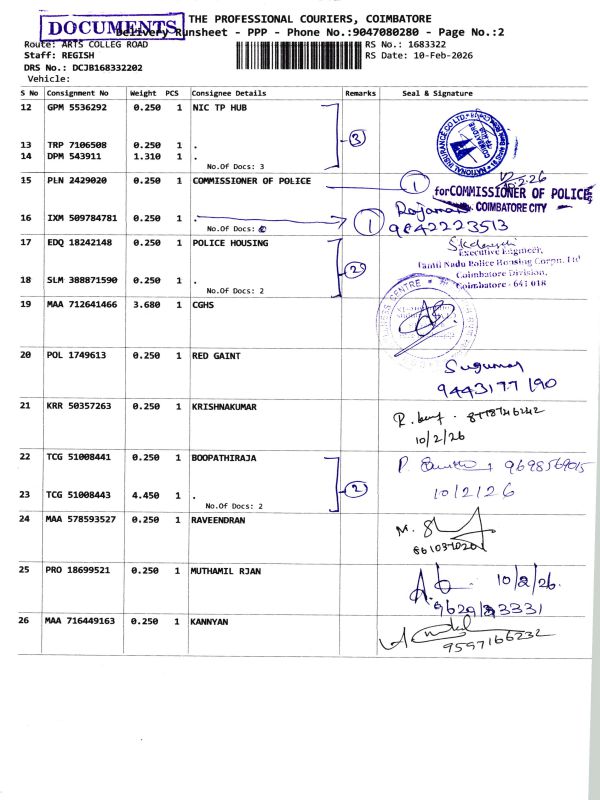 DOCUMENTS
THE PROFESSIONAL COURIERS, COIMBATORE
Delivery Runsheet - PPP - Phone No.:9047080280 - Page No.:2
Route: ARTS COLLEG ROAD
RS No.: 1683322
Staff: REGISH
RS Date: 10-Feb-2026
DRS No.: DCJB168332202
Vehicle:
S No Consignment No Weight PCS Consignee Details Remarks Seal & Signature
12 GPM 5536292 0.250 1 NIC TP HUB
3
13 TRP 7106508 0.250 1 .
14 DPM 543911 1.310 1 .
No.Of Docs: 3
NATIONAL INSURANCE CO LTD
COIMBATORE
15 PLN 2429020 0.250 1 COMMISSIONER OF POLICE
1
for COMMISSIONER OF POLICE
COIMBATORE CITY
16 IXM 509784781 0.250 1 .
No.Of Docs:
1
9842223513
17 EDQ 18242148 0.250 1 POLICE HOUSING
2
Executive Engineer,
Tamil Nadu Police Housing Corpn. Ltd
Coimbatore Division,
Coimbatore - 641 018
18 SLM 388871590 0.250 1 .
No.Of Docs: 2
19 MAA 712641466 3.680 1 CGHS
20 POL 1749613 0.250 1 RED GAINT
Sugumar
9443177190
21 KRR 50357263 0.250 1 KRISHNAKUMAR
10/2/26
22 TCG 51008441 0.250 1 BOOPATHIRAJA
2
9698569015
23 TCG 51008443 4.450 1 .
No.Of Docs: 2
10/2/26
24 MAA 578593527 0.250 1 RAVEENDRAN
25 PRO 18699521 0.250 1 MUTHAMIL RJAN
10/2/26.
26 MAA 716449163 0.250 1 KANNYAN
9597166232